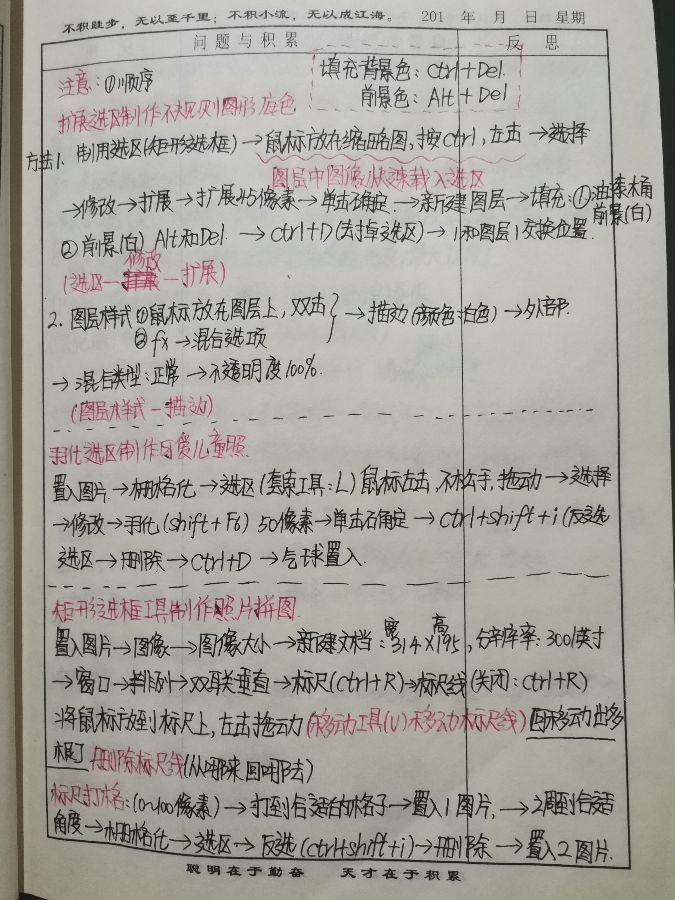 不积跬步，无以至千里；不积小流，无以成江海。 201 年 月 日 星期
问题与积累 反思
注意：①顺序
填充背景色：Ctrl+Del.
前景色：Alt+Del
扩展选区制作不规则图形底色
方法1. 制用选区(矩形选框)→鼠标放在缩略图,按ctrl,左击→选择
图层中图像快速载入选区
→修改→扩展→扩展45像素→单击确定.→新建图层→填充:①油漆桶
前景(白)
②前景(白) Alt和Del. →ctrl+D(去掉选区)→1和图层1交换位置.
(选区—修改—扩展)
2. 图层样式①鼠标放在图层上,双击
②fx→混合选项
→描边(颜色:白色)→外部.
→混合类型:正常→不透明度100%.
(图层样式—描边)
羽化选区制作可爱儿童照.
置入图片.→栅格化→选区(套索工具:L)鼠标左击,不松手,拖动→选择
→修改→羽化(shift+F6) 50像素→单击确定→ctrl+shift+i(反选
选区→删除→ctrl+D→气球置入.
矩形选框工具制作照片拼图.
置入图片→图像→图像大小→新建文档:宽314×高195,分辨率:300/英寸
→窗口→排列→双联垂直→标尺(ctrl+R)→标尺线(关闭:ctrl+R)
将鼠标放到标尺上,左击拖动(移动工具(V)移动标尺线)因移动出多
根了 删除标尺线(从哪来回哪去)
标尺打格:(0~100像素)→打到合适的格子→置入1图片,→2周到合适
角度→栅格化→选区→反选(ctrl+shift+i)→删除→置入2图片.
聪明在于勤奋 天才在于积累